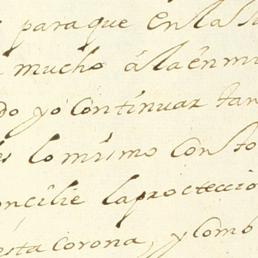 para que en la su
mucho á la en mi
do yo continuar tan
es lo mismo con to
oncilie la proteccio
esta Corona, y Comb